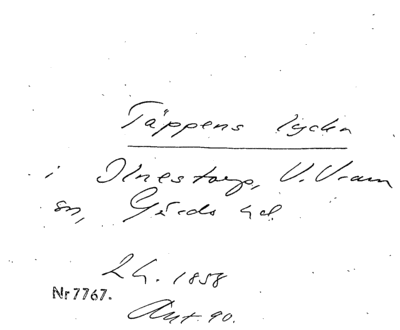 Täppens lycka
i Olnestorp, V. Vram
sn, Gärds hd.
2 h. 1858
Nr 7767.
Ant. 90.